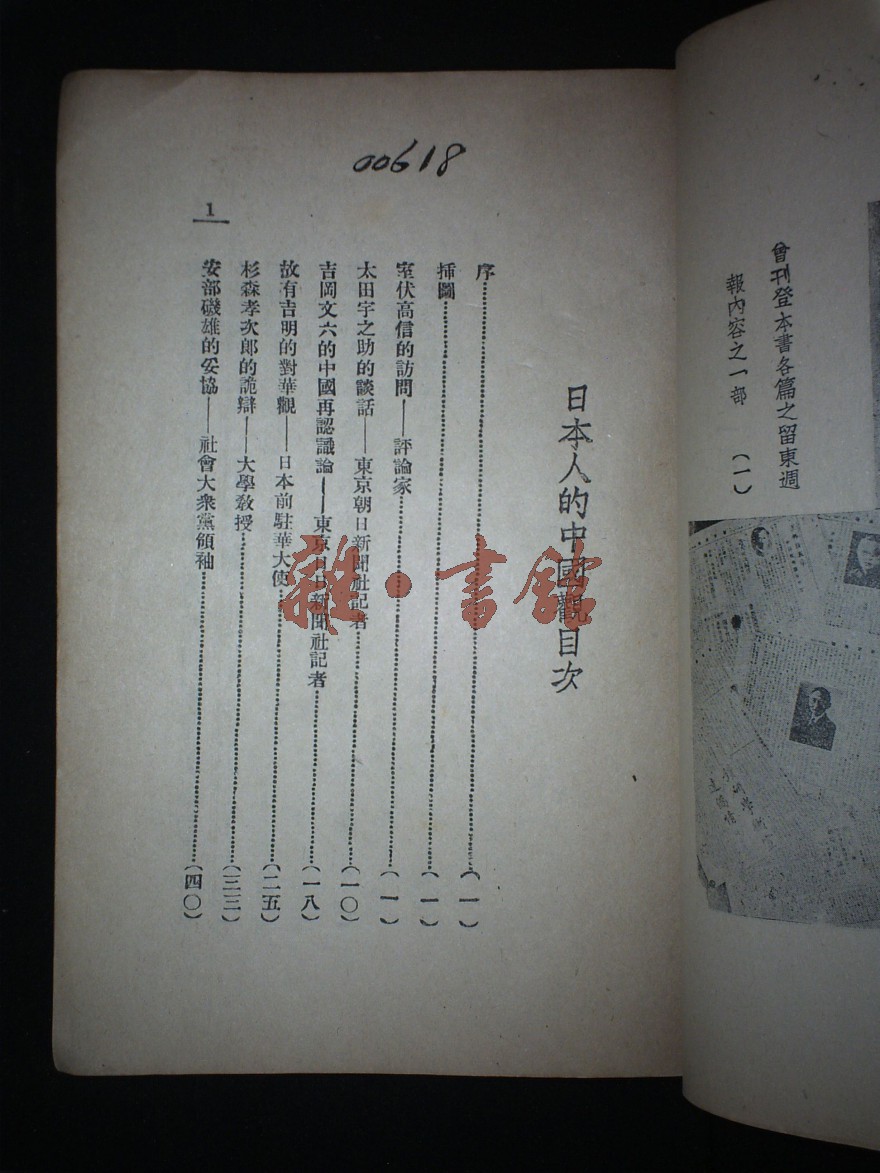 曾刊登本書各篇之留東週
報內容之一部　(一)
00618
日本人的中國觀目次
序……(一)
揷圖……(一)
室伏高信的訪問——評論家……(一)
太田宇之助的談話——東京朝日新聞社記者……(一〇)
吉岡文六的中國再認識論——東京日日新聞社記者……(一八)
故有吉明的對華觀——日本前駐華大使……(二五)
杉森孝次郎的詭辯——大學敎授……(三三)
安部磯雄的妥協——社會大衆黨領袖……(四〇)
1
雜·書館